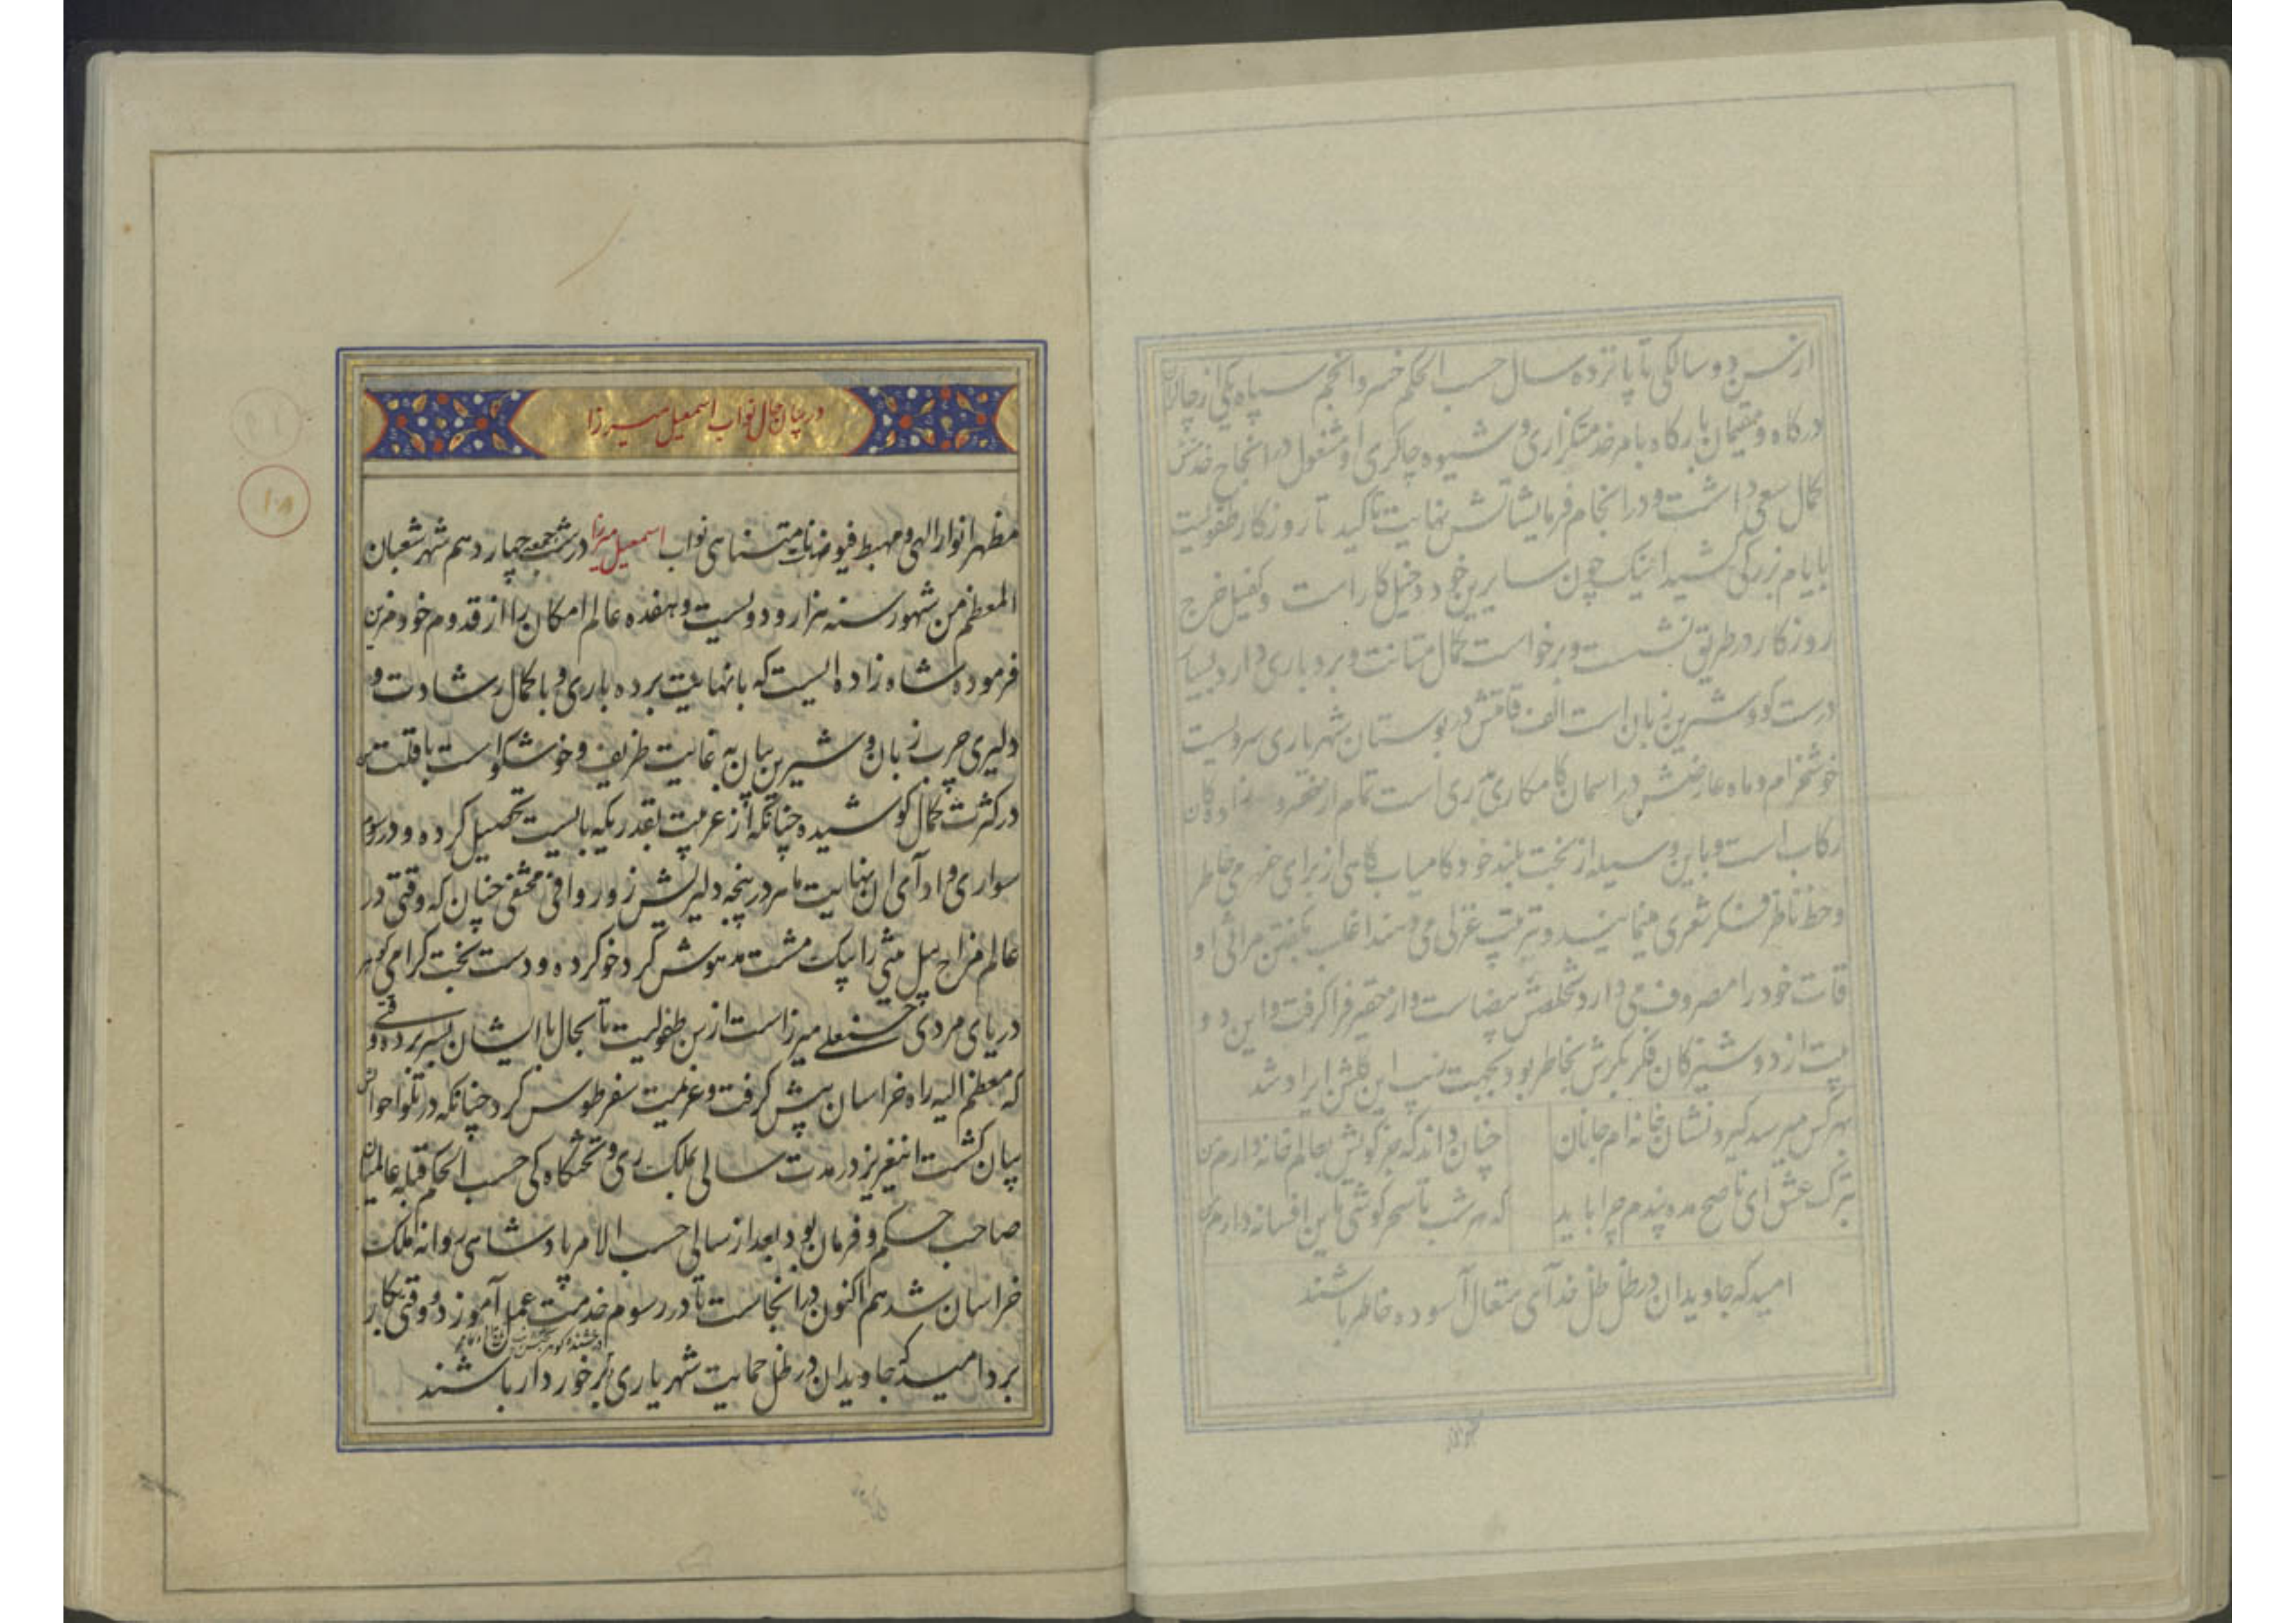 از سن دو سالگی تا پانزده سال حسب الحکم خسرو انجم سپاه یکی از چاکران
درکاه و مقیمان بارکاه بامر خدمتکزاری و شیوه چاکری او مشغول در انجاح خدمتش
کمال سعی داشت و در انجام فرمایشاتش نهایت تاکید تا روزکار طفولیت
بایام بزرکی کشید اینک چون سایرین خود دخیل کار است و کفیل خرج
روزکار در طریق نشست و برخواست کمال متانت و بردباری دارد بسیار
درست کو و شیرین زبان است الف قامتش در بوستان شهریاری سرویست
خوشخرام و ماه عارضش در اسمان کامکاری بدری است تمام از
رکاب است و باین وسیله از بخت بلند خود کامیاب کاهی از برای خرمی خاطر
و حظ ناظر فکر شعری مینمایند و ترتیب غزلی می دهند اغلب بکفتن مراثی او
قات خود را مصروف می دارد تخلصش بیضاست و از حقیر فرا کرفت و این دو
بیت از دوشیزکان فکر بکرش بخاطر بود بجهت زیب این کلشن ایراد شد
بهر کس میرسد کیرد نشان خانه ام جانان چنان داند که جز کویش بعالم خانه دارم من
بترک عشق ای ناصح مده پندم چرا باید که هر شب تا سحر کوشی باین افسانه دارم من
امید که جاویدان در ظل ظل خدآی متعال آسوده خاطر باشند
در بیان حال نواب اسمعیل میرزا
مظهر انوار الهی و مهبط فیوضات نامتناهی نواب اسمعیل میرزا در شب جمعه چهاردهم شهر شعبان
المعظم من شهور سنه هزار و دویست و هفده عالم امکان را از قدوم خود مزین
فرموده شاه زاده ایست که با نهایت برده باری و با کمال رشادت و
دلیری چرب زبان و شیرین بیان به غایت ظریف و خوشکو است با قلت سن
در کثرت کمال کوشیده چنانکه از عربیت بقدریکه بایست تحصیل کرده و در رسوم
سواری و ادآی ان نهایت ماهر در پنجه دلیریش زور وافی مخفی چنان که وقتی در
عالم مزاج پیل مثی را بیک مشت مدهوش کرد خو کرده و دست بخت کرامی کوهر
دریای مردی حسنعلی میرزاست از سن طفولیت تا بحال با ایشان بسر برده وقتی
که معظم الیه راه خراسان پیش کرفت و عزیمت سفر طوس کرد چنانکه در تلو احوالش
بیان کشت انیغریز در مدت سالی بملک ری و تختکاه کی حسب الحکم قبله عالمیان
صاحب حکم و فرمان بود بعد از سالی حسب الامر پادشاهی روانه ملک
خراسان شد هم اکنون در انجاست تا در رسوم خدمت عمل آموزد و وقتی بکار
برد امید که جاویدان در ظل حمایت شهریاری برخوردار باشند